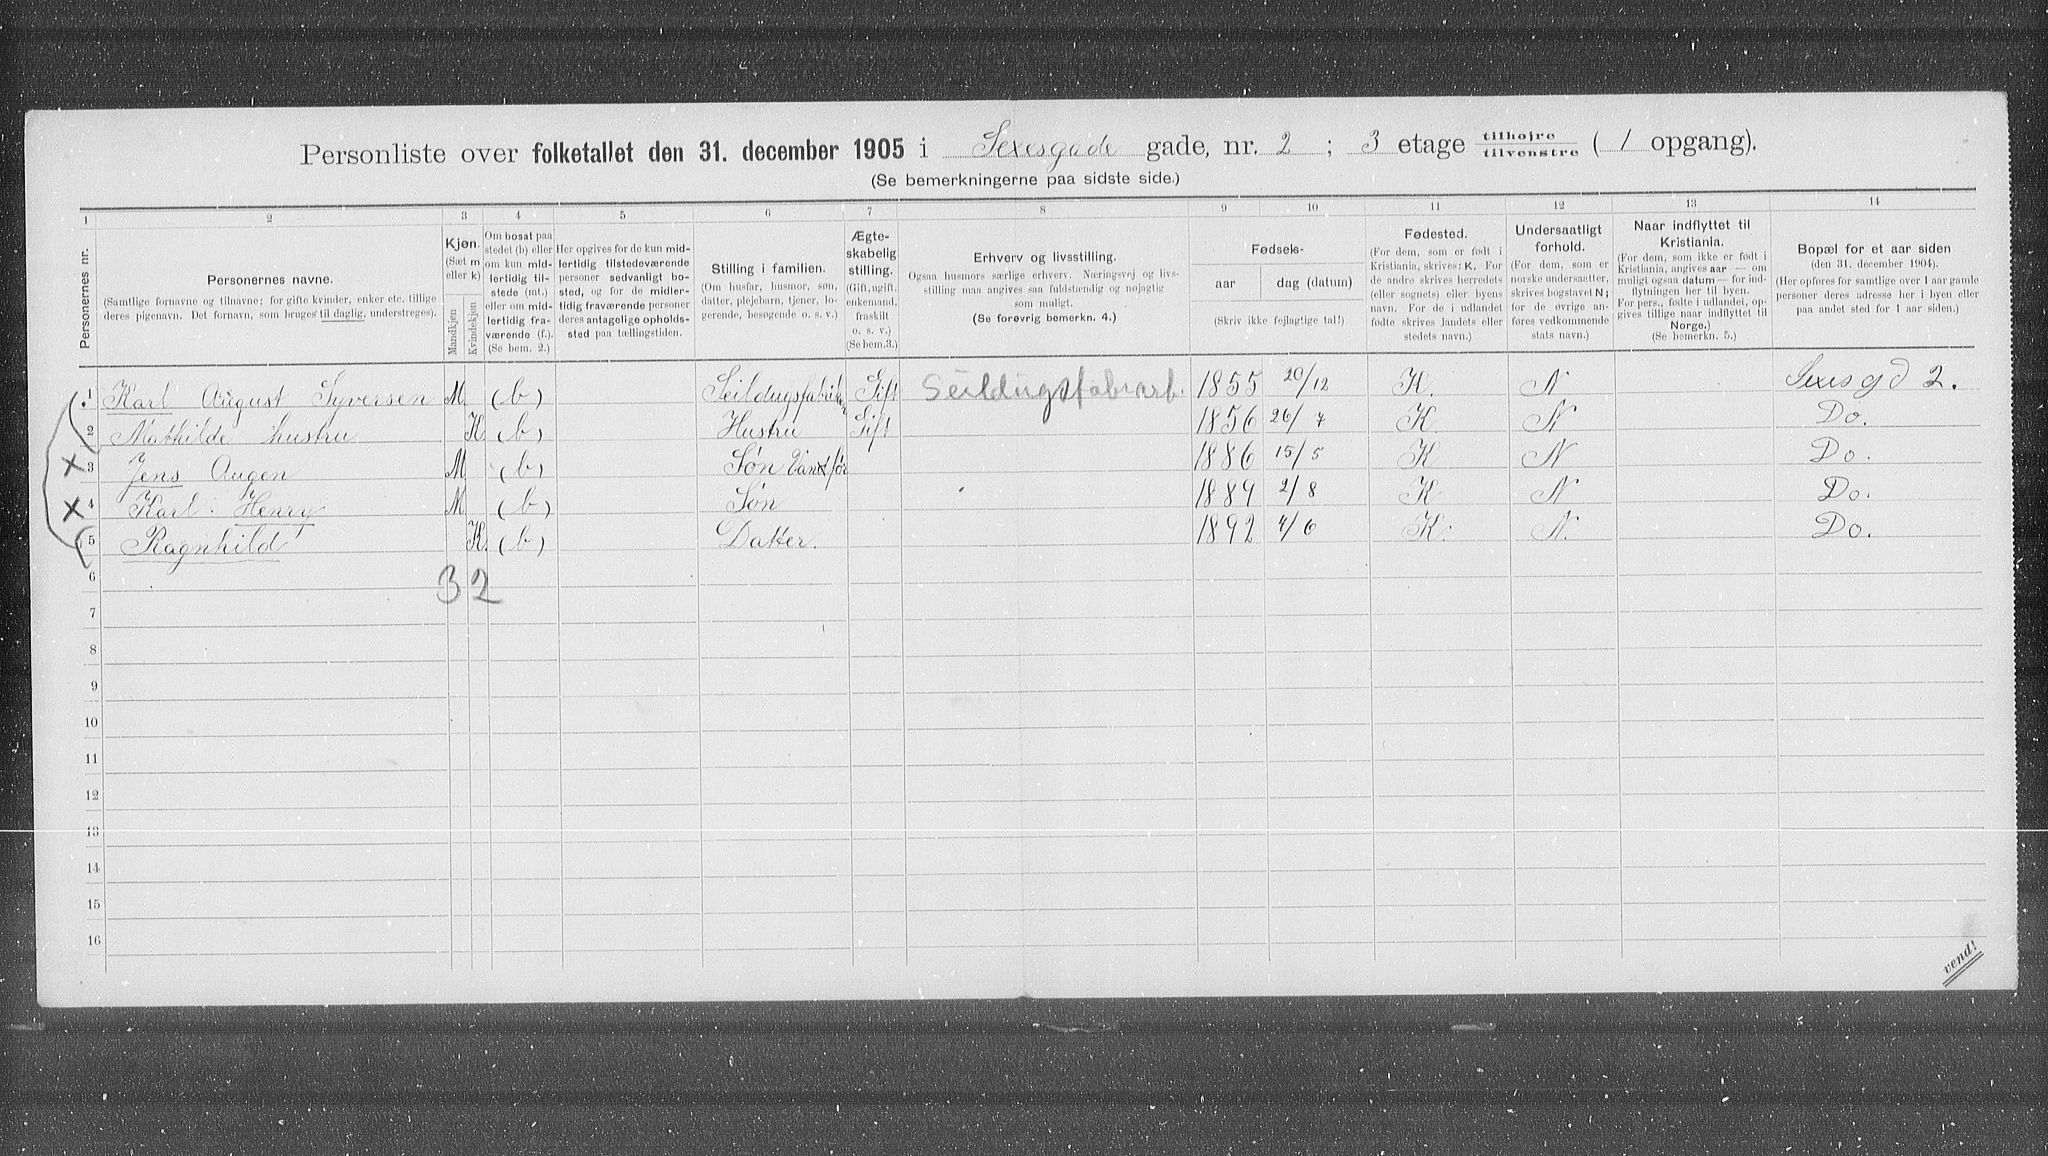 Personliste over folketallet den 31. december 1905 i Sexesgade gade, nr. 2 ; 3 etage tilhøjre tilvenstre ( 1 opgang).
(Se bemerkningerne paa sidste side.)
1 2 3 4 5 6 7 8 9 10 11 12 13 14
Personernes nr.
Personernes navne.
(Samtlige fornavne og tilnavne; for gifte kvinder, enker etc. tillige
deres pigenavn. Det fornavn, som bruges til daglig, understreges).
Kjøn.
(Sæt m
eller k)
Mandkjøn
Kvindekjøn
Om bosat paa
stedet (b) eller
om kun mid-
lertidig til-
stede (mt.)
eller om mid-
lertidig fra-
værende (f.).
(Se bem. 2.)
Her opgives for de kun mid-
lertidig tilstedeværende
personer sedvanligt bo-
sted, og for de midler-
tidig fraværende personer
deres antagelige opholds-
sted paa tællingstiden.
Stilling i familien.
(Om husfar, husmor, søn,
datter, plejebarn, tjener, lo-
gerende, besøgende o. s. v.)
Ægte-
skabelig
stilling.
(Gift, ugift,
enkemand,
fraskilt
o. s. v.)
(Se bem. 3.)
Erhverv og livsstilling.
Ogsaa husmors særlige erhverv. Næringsvej og livs-
stilling maa angives saa fuldstændig og nøjagtig
som muligt.
(Se forøvrig bemerkn. 4.)
Fødsels-
aar dag (datum)
(Skriv ikke fejlagtige tal!)
Fødested.
(For dem, som er født i
Kristiania, skrives: K. For
de andre skrives herredets
(eller sognets) eller byens
navn. For de i udlandet
fødte skrives landets eller
stedets navn.)
Undersaatligt
forhold.
(For dem, som er
norske undersaatter,
skrives bogstavet N;
for de øvrige an-
føres vedkommende
stats navn.)
Naar indflyttet til
Kristiania.
(For dem, som ikke er født i
Kristiania, angives aar — om
muligt ogsaa datum — for ind-
flytningen her til byen.
For pers., fødte i udlandet, op-
gives tillige naar indflyttet til
Norge.)
(Se bemerkn. 5.)
Bopæl for et aar siden
(den 31. december 1904).
(Her opføres for samtlige over 1 aar gamle
personer deres adresse her i byen eller
paa andet sted for 1 aar siden.)
1 Karl August Syversen M. (b) Gift Seildugsfabrarb. 1855 20/12 K. N Sexesgd 2.
2 Mathilde hustru K. (b) Hustru Gift 1856 26/7 K N Do.
x 3 Jens Augen M. (b) Søn 1886 15/5 K N Do.
x 4 Karl. Henry M (b) Søn 1889 2/8 K N Do.
5 Ragnhild K. (b) Datter. 1892 4/6 K. N. Do.
6 3 2
7
8
9
10
11
12
13
14
15
16
vend!